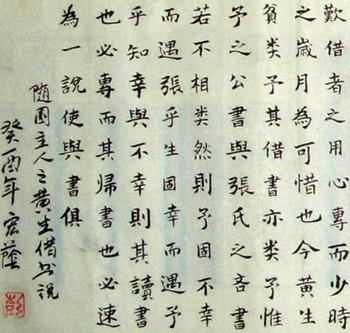 歎借者之用心專而少時
之歲月為可惜也今黃生
貧类予其借書亦类予惟
予之公書與張氏之吝書
若不相类然則予固不幸
而遇張乎生固幸而遇予
乎知幸與不幸則其讀書
也必專而其歸書也必速
為一說使與書俱
隨園主人之黃生借书說
癸酉年宏蔭
彭